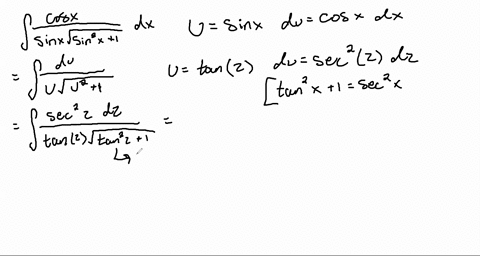 ∫ cosx / (sinx√(sin²x+1)) dx   U = sinx   du = cosx dx
= ∫ du / (U√(U²+1))   U = tan(z)   du = sec²(z) dz
[tan²x + 1 = sec²x
= ∫ sec²z dz / (tan(z)√(tan²z + 1)) =